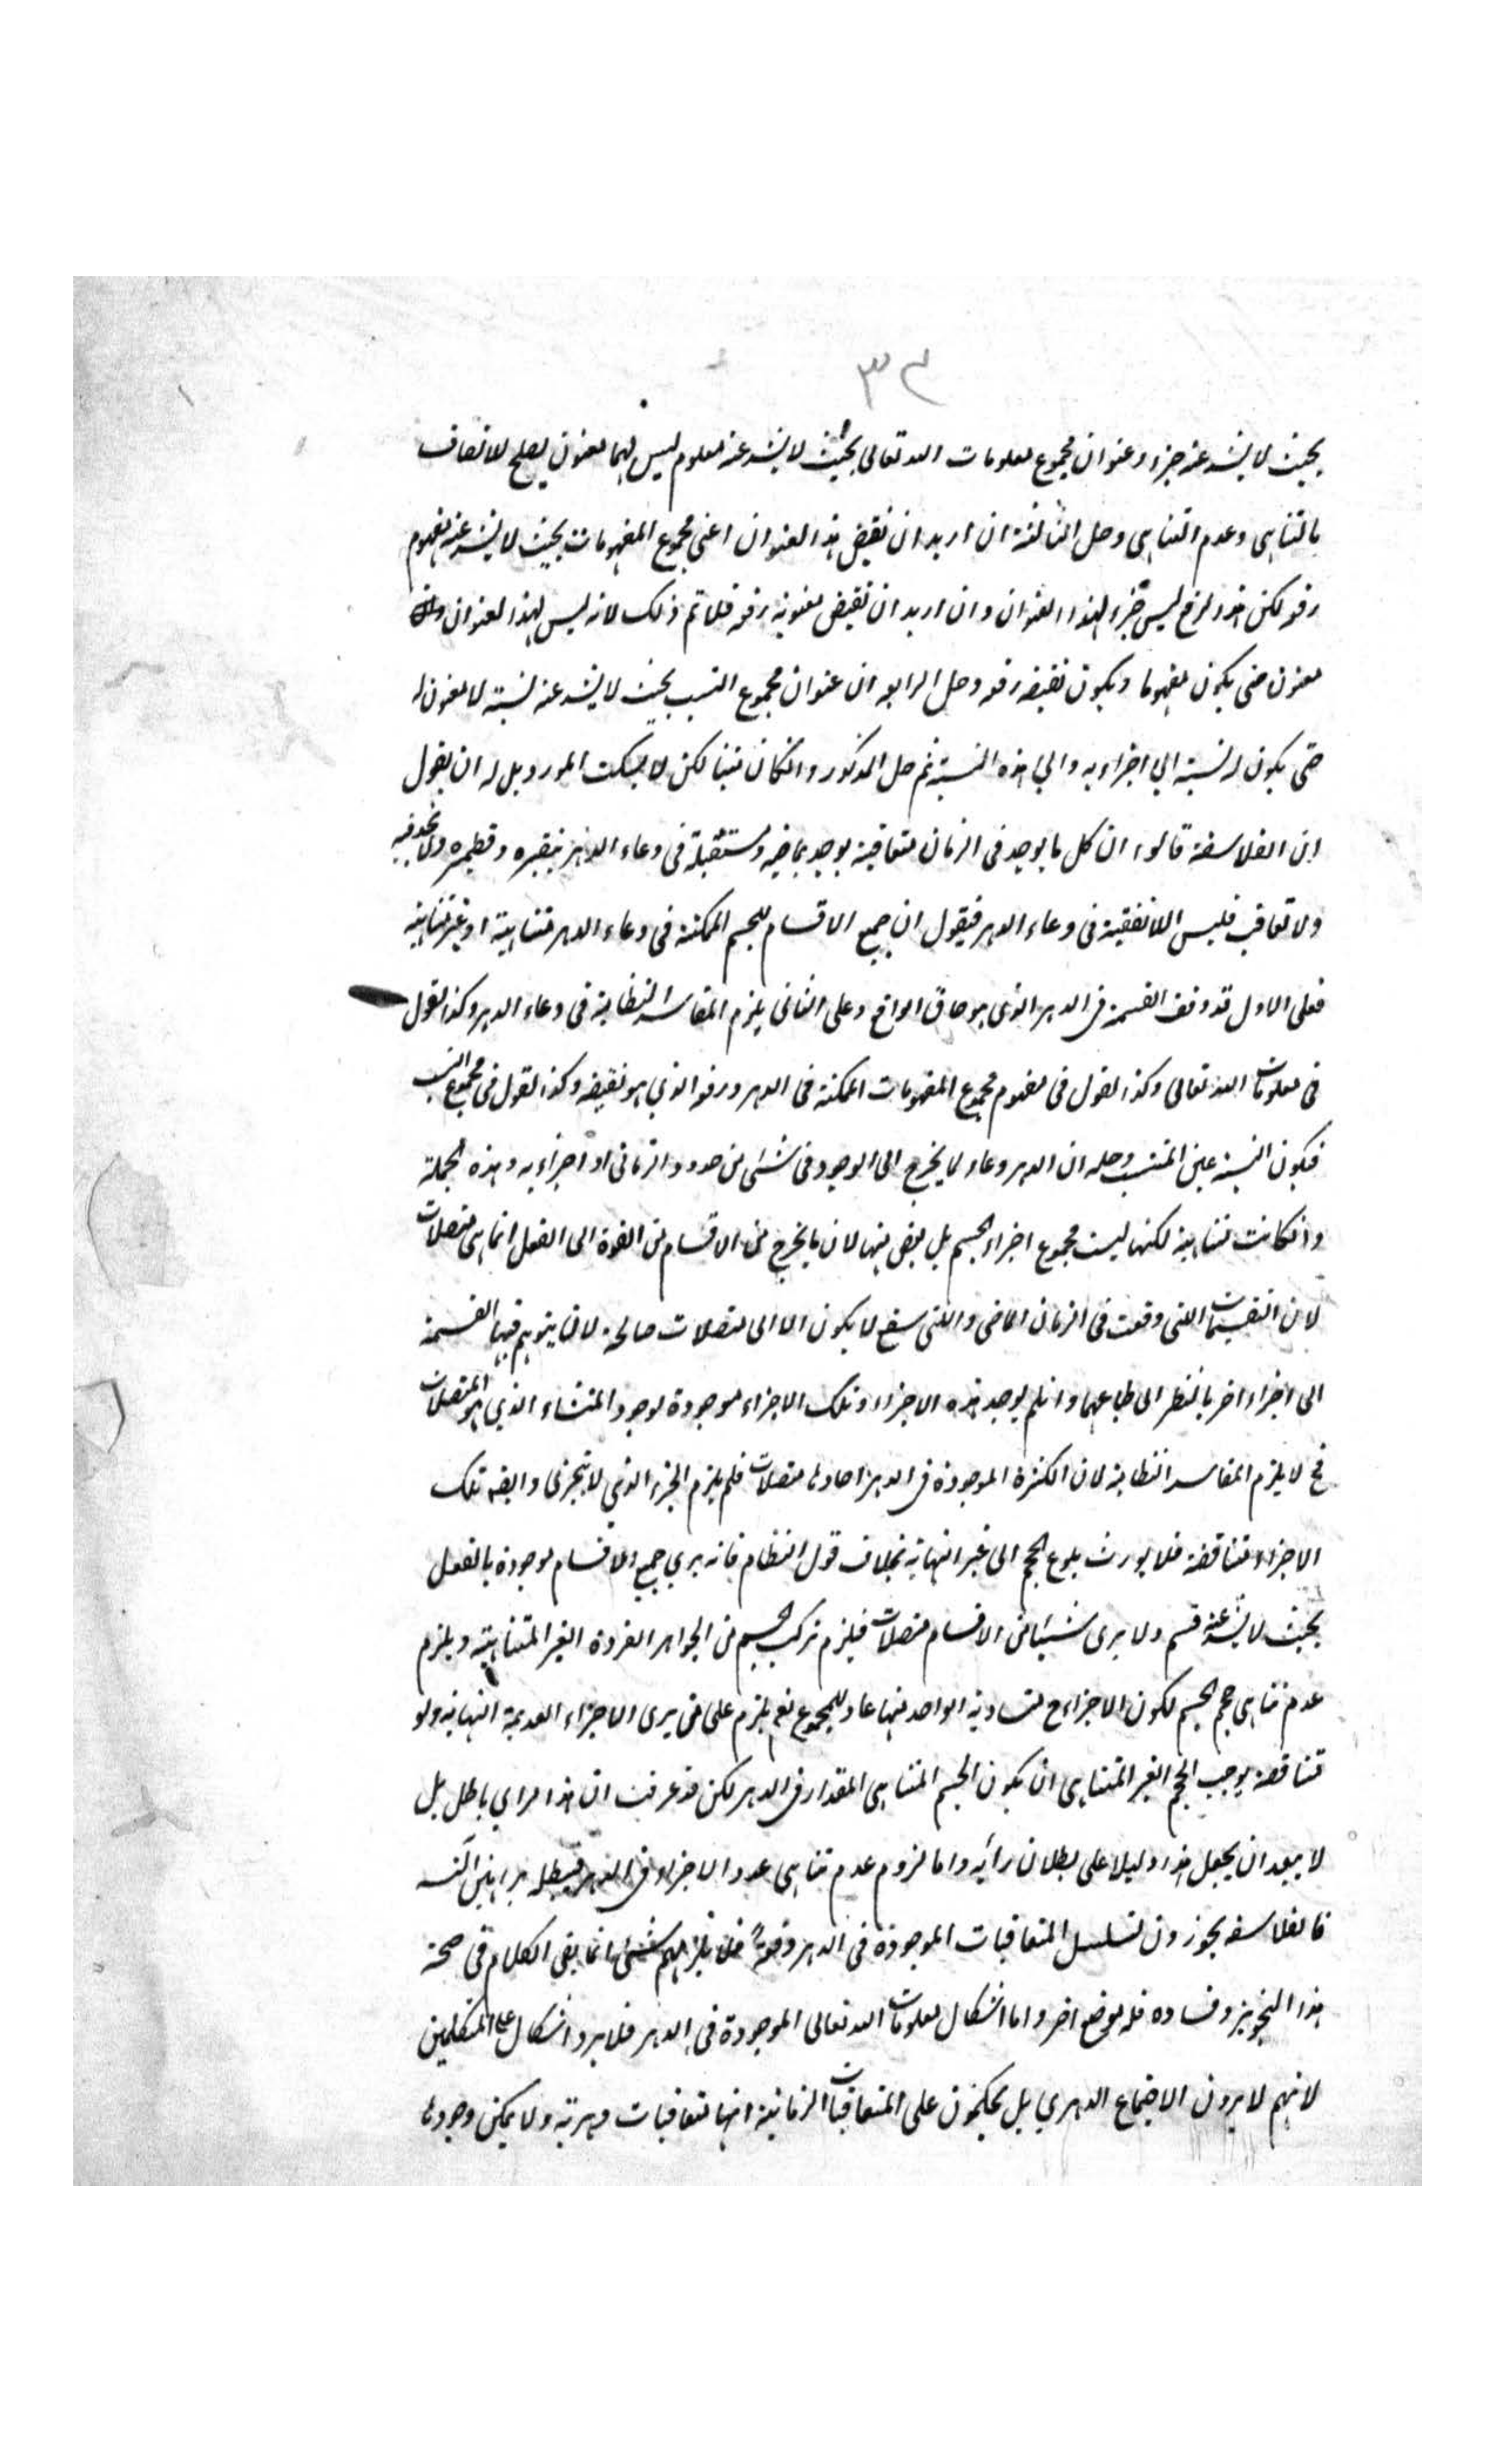 ٣٢
بحيث لا يشذ عنه جزء وعنوان مجموع معلومات الله تعالى بحيث لا يشذ عنه معلوم ليس لهما معنون يصلح للاتصاف
بالتناهى وعدم التناهى وحل الثالثة ان اريد ان نقيض هذا العنوان اعنى مجموع المفهومات بحيث لا يشذ عنه مفهوم
رفعه لكن هذا الرفع ليس جزء لهذا العنوان وان اريد ان نقيض معنونه رفعه فلا تم ذلك لانه ليس لهذا العنوان
معنون حتى يكون مفهوما ويكون نقيضه رفعه وحل الرابعه ان عنوان مجموع النسب بحيث لا يشذ عنه نسبة لا معنون له
حتى يكون له نسبة الي اجزاءه والي هذه النسبة ثم حل المذكور وانكان متينا لكن لا يسكت المورد بل له ان يقول
ان الفلاسفة قالوا ان كل ما يوجد فى الزمان متعاقبة يوجد بماضيه ومستقبله فى وعاء الدهر بنقيره وقطميره ولا تجدد فيه
ولا تعاقب فليس اللاتقفية فى وعاء الدهر فيقول ان جميع الاقسام للجسم الممكنة فى وعاء الدهر متناهية او غير متناهية
فعلى الاول قد وقف القسمة فى الدهر الذى هو حاق الواقع وعلى الثانى يلزم المفاسد النظامية فى وعاء الدهر وكذا القول
فى معلومات الله تعالى وكذا القول فى مفهوم مجموع المفهومات الممكنة فى الدهر ورفعه الذي هو نقيضه وكذا القول فى مجموع النسب
فيكون النسبة عين المنتسب وحله ان الدهر وعاء لما يخرج الى الوجود فى شىء من حدود الزمانى او اجزاءه وهذه الجملة
وانكانت متناهية لكنها ليست مجموع اجزاء الجسم بل بعض منها لان ما يخرج من الاقسام من القوة الى الفعل انما هى متصلات
لان التقسيمات اللتى وقعت فى الزمان الماضى واللتى سيقع لا يكون الا الى متصلات صالحة لان يتوهم فيها القسمة
الى اجزاء اخر بالنظر الى طباعها وانلم يوجد هذه الاجزاء وتلك الاجزاء موجودة لوجود المنشاء الذي هو المتصلات
فح لا يلزم المفاسد النظامية لان الكثرة الموجودة فى الدهر احادها متصلات فلم يلزم الجزء الذي لا يتجزى وايضه تلك
الاجزاء متناقصة فلا يورث بلوغ الحجم الى غير النهاية بخلاف قول النظام فانه يرى جميع الاقسام موجودة بالفعل
بحيث لا يشذ عنه قسم ولا يرى شيئا من الاقسام متصلات فيلزم تركب الجسم من الجواهر الفردة الغير المتناهية ويلزم
عدم تناهى حجم الجسم لكون الاجزاء ح متساوية الواحد منها عاد للمجموع نعم يلزم على من يرى الاجزاء العديمة النهاية ولو
متناقصة يوجب الحجم الغير المتناهى ان يكون الجسم المتناهى المقدار فى الدهر لكن قد عرفت ان هذا مراي باطل بل
لا يبعد ان يجعل هذا دليلا على بطلان رأيه واما لزوم عدم تناهى عدد الاجزاء فى الدهر فيبطله براهين التسـ
فالفلاسفه يجوزون تسلسل المتعاقبات الموجودة فى الدهر دفعةً فلا يلزمهم شىء انما بقى الكلام فى صحة
هذا التجويز وفساده فله موضع اخر واما اشكال معلومات الله تعالى الموجودة فى الدهر فلا يرد اشكال على المتكلمين
لانهم لا يرون الاجتماع الدهري بل يحكمون على المتعاقبات الزمانية انها متعاقبات دهرية ولا يمكن وجودها